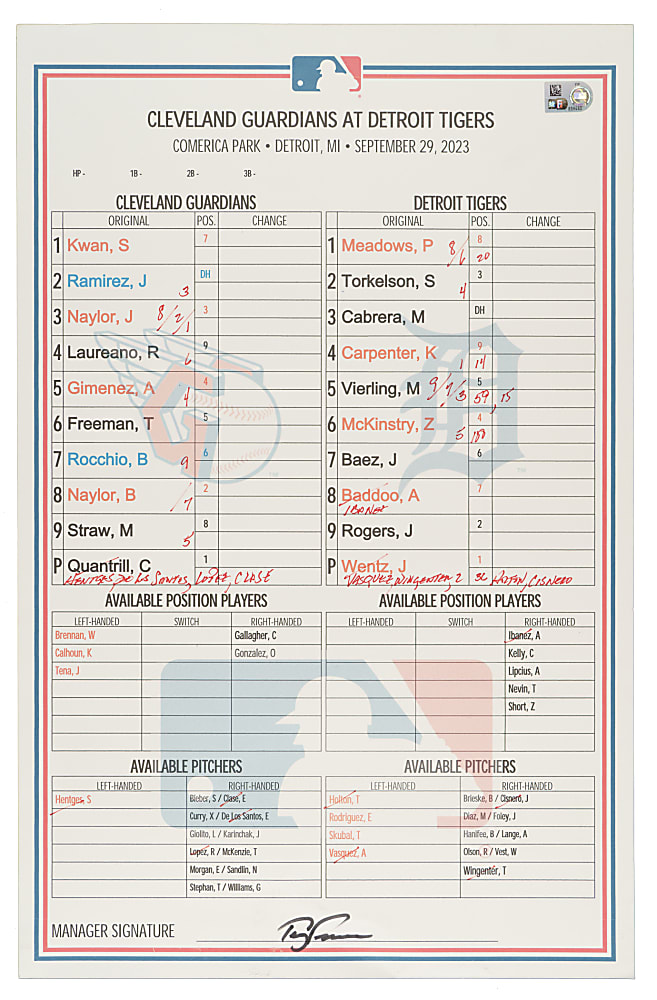 CLEVELAND GUARDIANS AT DETROIT TIGERS
COMERICA PARK • DETROIT, MI • SEPTEMBER 29, 2023
HP - 1B - 2B - 3B -
CLEVELAND GUARDIANS
ORIGINAL POS. CHANGE
1 Kwan, S 7
2 Ramirez, J 3 DH
3 Naylor, J 8/2/1 3
4 Laureano, R 6 9
5 Gimenez, A 4 4
6 Freeman, T 5
7 Rocchio, B 9 6
8 Naylor, B /7 2
9 Straw, M 5 8
P Quantrill, C 1
HENTGES, DE LOS SANTOS, LOPEZ, CLASE
DETROIT TIGERS
ORIGINAL POS. CHANGE
1 Meadows, P 8/6 8 20
2 Torkelson, S 4 3
3 Cabrera, M DH
4 Carpenter, K 1 9 14
5 Vierling, M 9/7/3 5 59, 15
6 McKinstry, Z 5 4
7 Baez, J 6
8 Baddoo, A 7
IBANEZ
9 Rogers, J 2
P Wentz, J 1
VASQUEZ, WINGENTER, HOLTON, CISNERO
AVAILABLE POSITION PLAYERS
LEFT-HANDED SWITCH RIGHT-HANDED
Brennan, W Gallagher, C
Calhoun, K Gonzalez, O
Tena, J
AVAILABLE POSITION PLAYERS
LEFT-HANDED SWITCH RIGHT-HANDED
Ibanez, A
Kelly, C
Lipcius, A
Nevin, T
Short, Z
AVAILABLE PITCHERS
LEFT-HANDED RIGHT-HANDED
Hentges, S Bieber, S / Clase, E
Curry, X / De Los Santos, E
Giolito, L / Karinchak, J
Lopez, R / McKenzie, T
Morgan, E / Sandlin, N
Stephan, T / Williams, G
AVAILABLE PITCHERS
LEFT-HANDED RIGHT-HANDED
Holton, T Brieske, B / Cisnero, J
Rodriguez, E Diaz, M / Foley, J
Skubal, T Hanifee, B / Lange, A
Vasquez, A Olson, R / Vest, W
Wingenter, T
MANAGER SIGNATURE